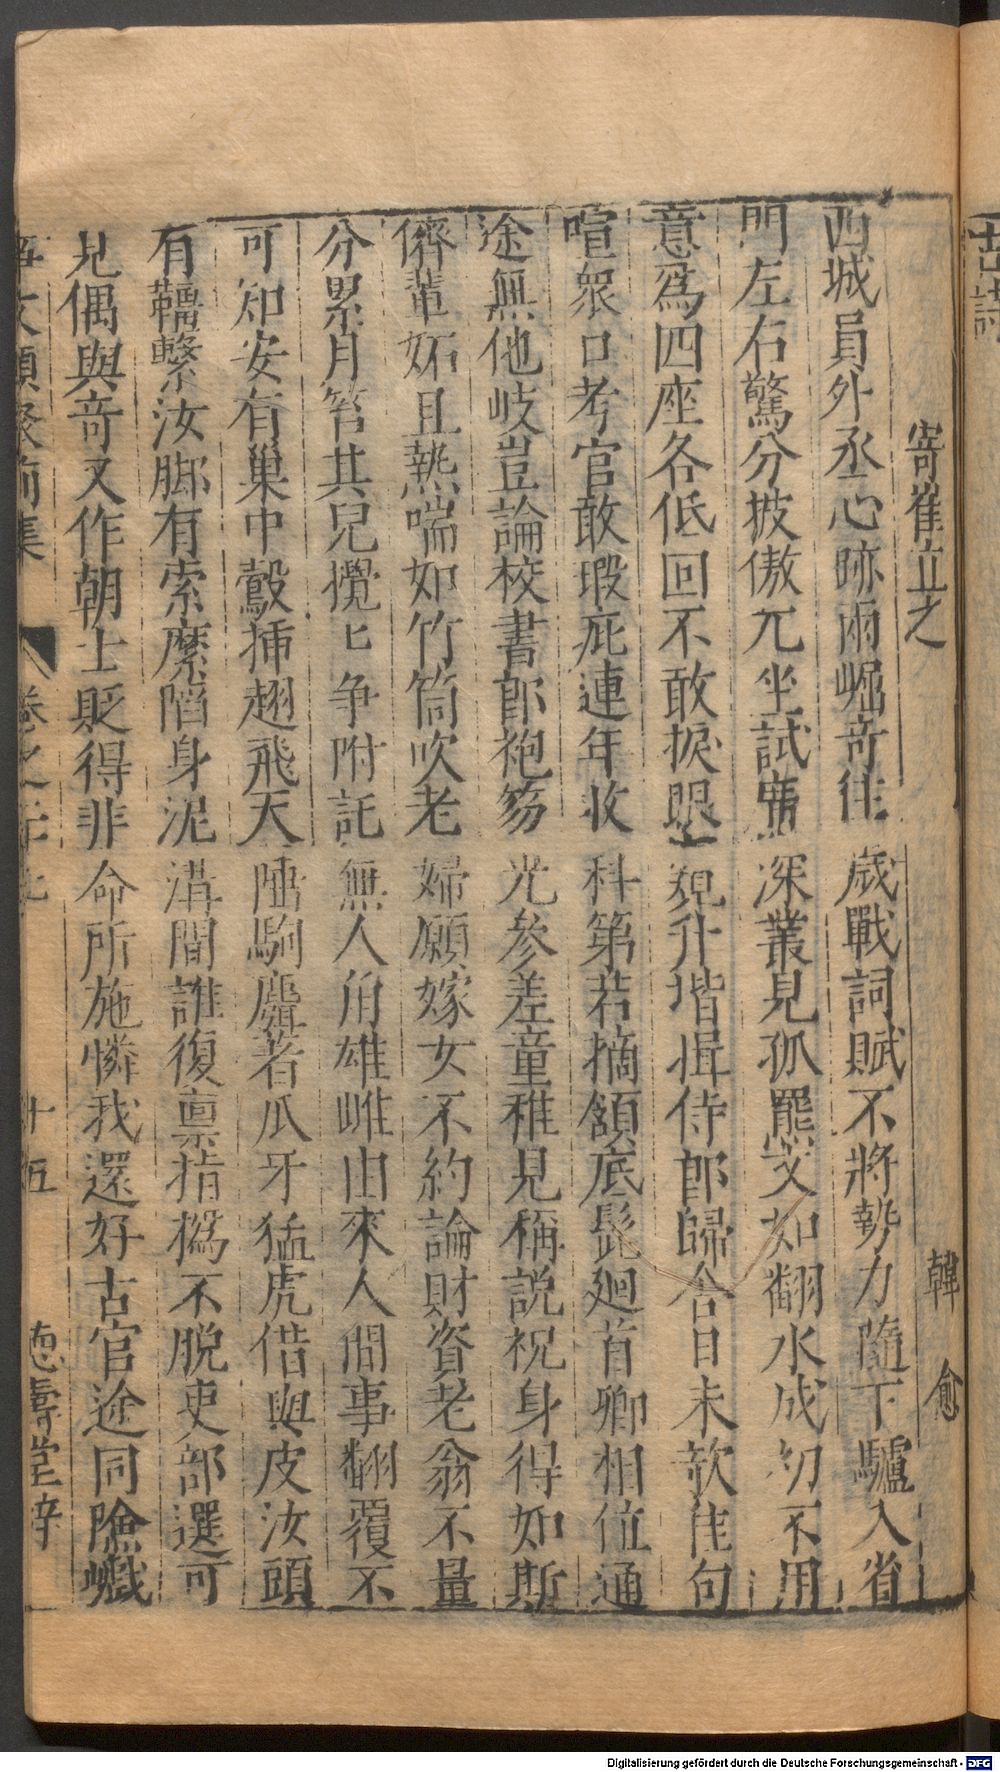 寄崔立之　韓愈
西城員外丞心跡兩崛奇往歲戰詞賦不將勢力隨下驢入省
門左右驚分披傲兀坐試席深叢見孤羆文如翻水成初不用
意爲四座各低回不敢捩眼窺升堦揖侍郎歸舍日未欹佳句
喧衆口考官敢瑕疵連年收科第若摘頷底髭廻首卿相位通
途無他岐豈論校書郎袍笏光參差童稚見稱説祝身得如斯
儕輩妬且熱喘如竹筒吹老婦願嫁女不約論財資老翁不量
分累月笞其兒攪匕争附託無人角雄雌由來人間事翻覆不
可知安有巢中鷇挿翅飛天陲駒麛著爪牙猛虎借與皮汝頭
有韁繫汝脚有索縻陷身泥溝間誰復禀指撝不脱吏部選可
見偶與竒又作朝士貶得非命所施憐我還好古官途同險巇
事文類聚前集　卷之　十五　德壽堂梓
古詩
Digitalisierung gefördert durch die Deutsche Forschungsgemeinschaft - DFG